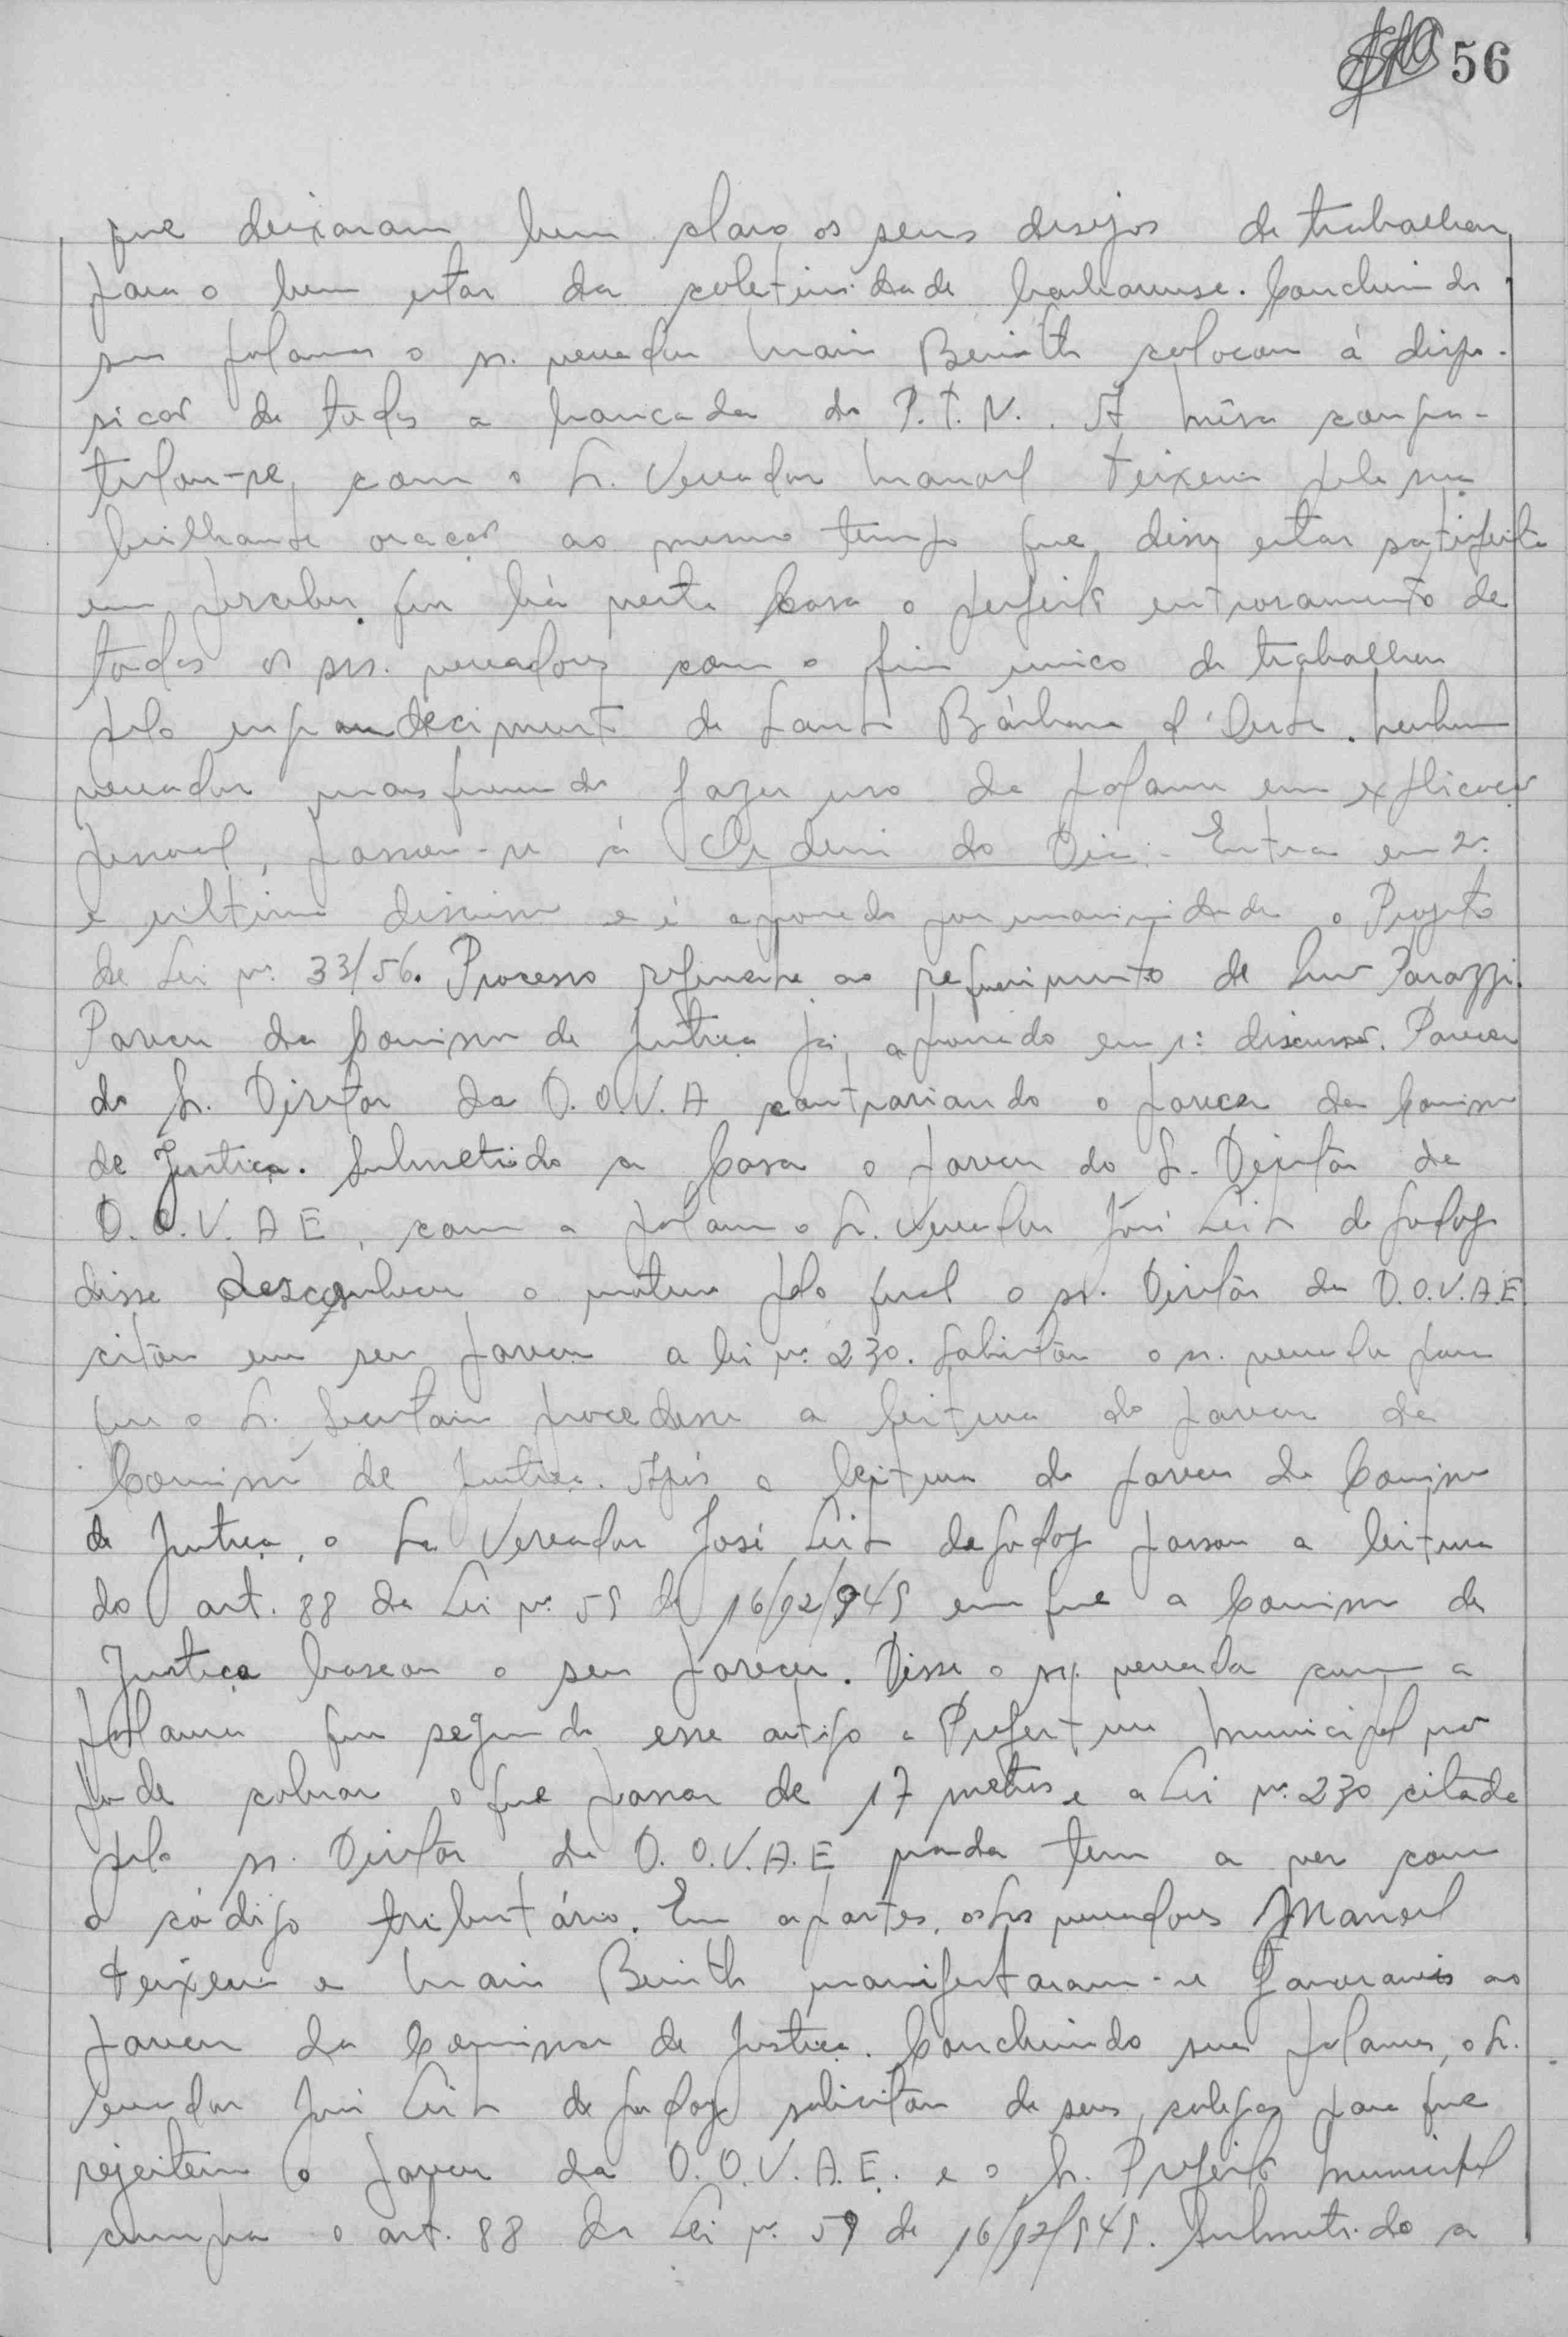 56
que deixaram bem claro os seus desejos de trabalhar
para o bem estar da coletividade barbarense. Concluindo
suas palavras o sr. vereador Irain Benith colocou á dispo-
sição de todos a bancada do P.T.N. A mêsa congra-
tulou-se com o Sr. Vereador Manoel Teixeira pela sua
brilhante oração ao mesmo tempo que disse estar satisfeita
em perceber que há nesta Casa o perfeito entrosamento de
todos os srs. vereadores com o fim unico de trabalhar
pelo engrandecimento de Santa Bárbara d'Oeste. Nenhum
vereador mais querendo fazer uso da palavra em explicação
pessoal, passou-se á Ordem do Dia - Entra em 2ª
e última discussão e é aprovado por unanimidade o Projeto
de Lei nº 33/56. Processo referente ao requerimento de Parazzi.
Parecer da Comissão de Justiça já aprovado em 1ª discussão. Parecer
do Sr. Diretor da D.O.V.A contrariando o parecer da Comissão
de Justiça. Submetido a Casa o parecer do Sr. Diretor da
D.O.V.A E, com a palavra o Sr. Vereador José Leite de Godoy
disse desconhecer o motivo pelo qual o sr. Diretôr da D.O.V.A.E.
citou em seu parecer a lei nº 230. Solicitou o sr. vereador para
que o Sr. Secretario procedesse a leitura do parecer da
Comissão de Justiça. Após a leitura do parecer da Comissão
de Justiça, o Sr. Vereador José Leite de Godoy passou a leitura
do art. 88 da Lei nº 59 de 16/12/949 em que a Comissão de
Justiça baseou o seu parecer. Disse o sr. vereador com a
palavra que segundo esse artigo a Prefeitura Municipal não
pode cobrar o que passar de 17 metros e a Lei nº 230 citada
pelo sr. Diretôr da D.O.V.A.E nada tem a ver com
o código tributário. Em apartes, os Srs vereadores Manoel
Teixeira e Irain Benith manifestaram-se favoraveis ao
parecer da Comissão de Justiça. Concluindo suas palavras, o Sr.
Vereador José Leite de Godoy solicitou de seus colegas para que
rejeitem o parecer da D.O.V.A.E. e o Sr. Prefeito Municipal
cumpra o art. 88 da Lei nº 59 de 16/12/949. Submetido a